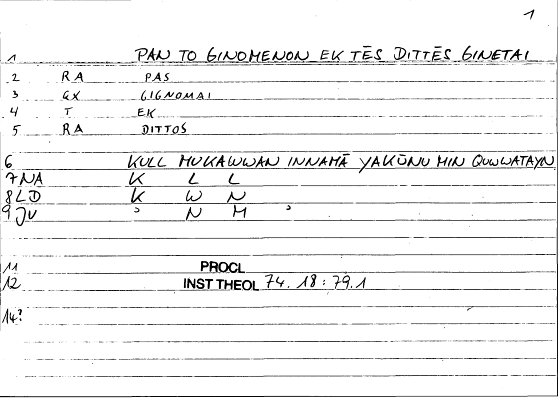 1
1 PAN TO GINOMENON EK TĒS DITTĒS GINETAI
2 RA PAS
3 GX GIGNOMAI
4 T EK
5 RA DITTOS
6 KULL MUKAWWAN INNAMĀ YAKŪNU MIN QUWWATAYN
7 NA K L L
8 LD K W N
9 JU ʾ N M ʾ
11 PROCL
12 INST THEOL 74.18:79.1
14?